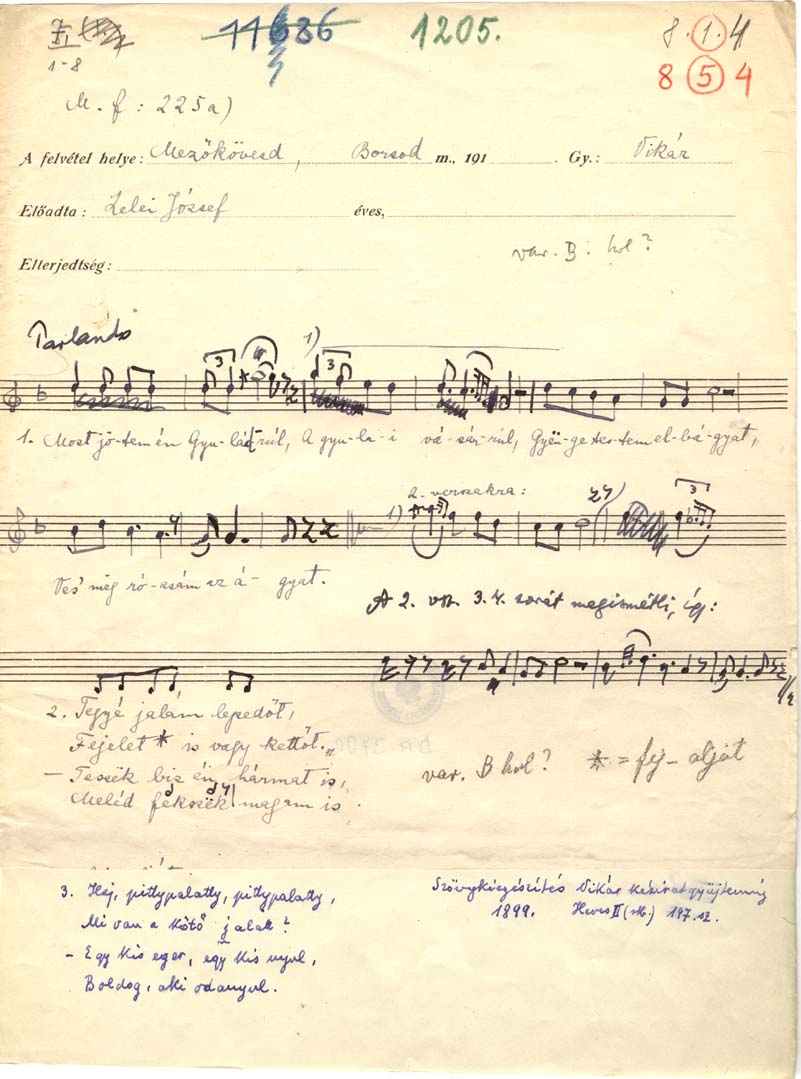 1-8
11686
1205.
8.1.4
8 5 4
M. f: 225a)
A felvétel helye: Mezőkövesd, Borsod m., 191 . Gy.: Vikár
Előadta: Zelei József éves,
Elterjedtség:
var. B: hol?
Parlando
3 1) 3
1. Most jö-tem én Gyu-lá-rúl, A gyu-la-i vá-sár-rúl, Gyön-ge tes-tem el-bá-gyat,
2. versszakra:
1) 3
Ves' még ró-zsám az á-gyat.
A 2. vsz. 3. 4. sorát megismétli, így:
2. Tegyé jalám lepedőt,
Fejelet * is vagy kettőt.„
- Teszek biz én, hármat is,
Meléd fekszek magam is.
var. B hol? * = fej-alját
3. Haj, pittypalatty, pittypalatty,
Mi van a kötő jalatt?
- Egy kis eger, egy kis nyul,
Boldog, aki odanyul.
Szövegkiegészítés Vikár kéziratgyüjteménye
1899. Heves II 197. sz.